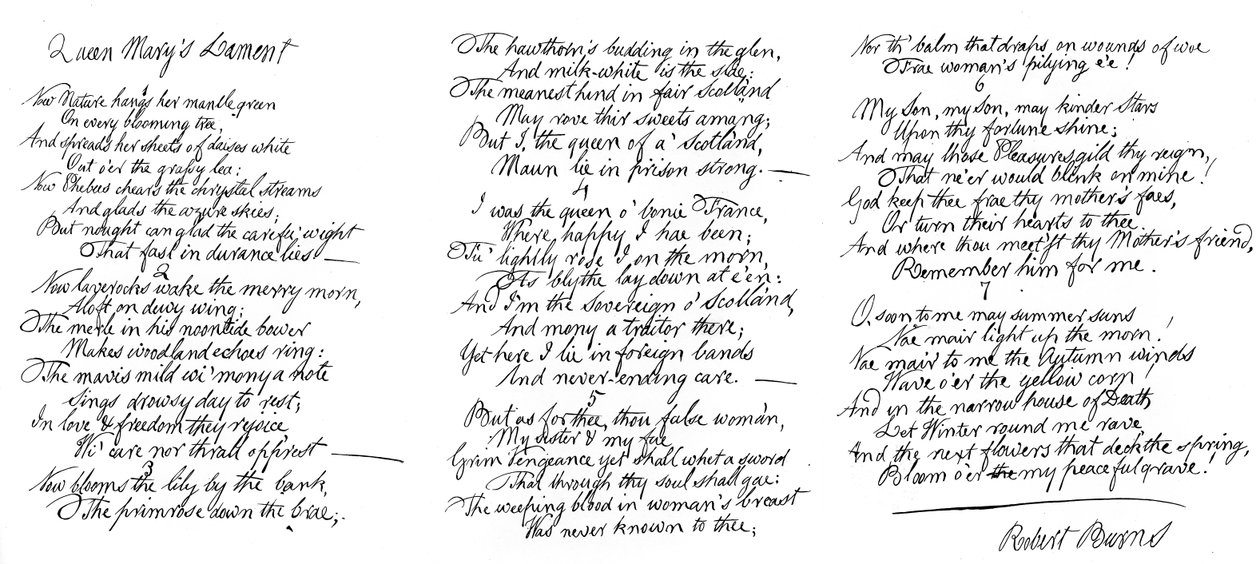 Queen Mary's Lament
1
Now Nature hangs her mantle green
On every blooming tree,
And spreads her sheets of daises white
Out o'er the grassy lea:
Now Phebus chears the chrystal streams
And glads the azure skies;
But nought can glad the carefu' wight
That fast in durance lies —
2
Now laverocks wake the merry morn,
Aloft on dewy wing;
The merle in his noontide bower
Makes woodland echoes ring:
The mavis mild wi' mony a note
Sings drowsy day to rest;
In love & freedom they rejoice
Wi' care nor thrall opprest —
3
Now blooms the lily by the bank,
The primrose down the brae;
The hawthorn's budding in the glen,
And milk-white is the slae:
The meanest hind in fair Scotland
May rove thir sweets amang;
But I, the queen of a' Scotland,
Maun lie in prison strong. —
4
I was the queen o' bonie France,
Where happy I hae been;
Fu' lightly rose I on the morn,
As blythe lay down at e'en:
And I'm the sovereign o' Scotland,
And mony a traitor there;
Yet here I lie in foreign bands
And never-ending care. —
5
But as for thee, thou false woman,
My sister & my fae
Grim Vengeance yet shall whet a sword
That through thy soul shall gae:
The weeping blood in woman's breast
Was never known to thee;
Nor th' balm that draps on wounds of woe
Frae woman's pitying e'e!
6
My Son, my son, may kinder Stars
Upon thy fortune shine;
And may those Pleasures gild thy reign,
That ne'er would blink on mine!
God keep thee frae thy mother's faes,
Or turn their hearts to thee
And where thou meet'st thy Mother's friend,
Remember him for me.
7
O, soon to me may summer suns
Nae mair light up the morn!
Nae mair to me the Autumn winds
Wave o'er the yellow corn
And in the narrow house of Death
Let Winter round me rave
And the next flowers that deck the spring,
Bloom o'er the my peaceful grave!
Robert Burns